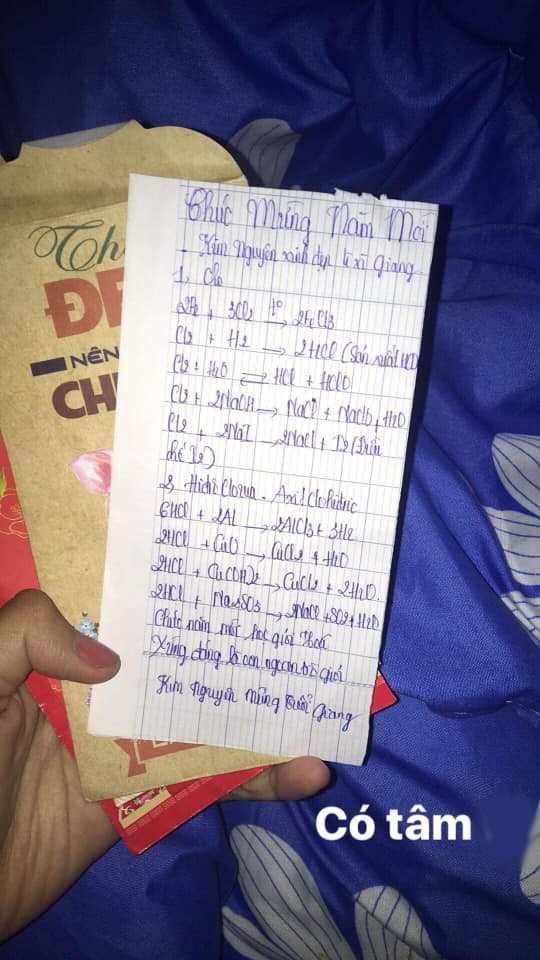 Th
ĐẸ
NÊN
CH
Chúc Mừng Năm Mới
- Kim Nguyên xinh đẹp lì xì Giang
1, Clo
2Fe + 3Cl2 t° → 2FeCl3
Cl2 + H2 → 2HCl (Sản xuất HCl)
Cl2 + H2O ⇌ HCl + HClO
Cl2 + 2NaOH → NaCl + NaClO + H2O
Cl2 + 2NaI → 2NaCl + I2 (Điều
chế I2)
2, Hiđrô Clorua - Axit Clohiđric
6HCl + 2Al → 2AlCl3 + 3H2
2HCl + CuO → CuCl2 + H2O
2HCl + Cu(OH)2 → CuCl2 + 2H2O
2HCl + Na2SO3 → 2NaCl + SO2 + H2O
Chúc năm mới học giỏi Hoá
Xứng đáng là con ngoan trò giỏi
Kim Nguyên mừng tuổi Giang
Có tâm